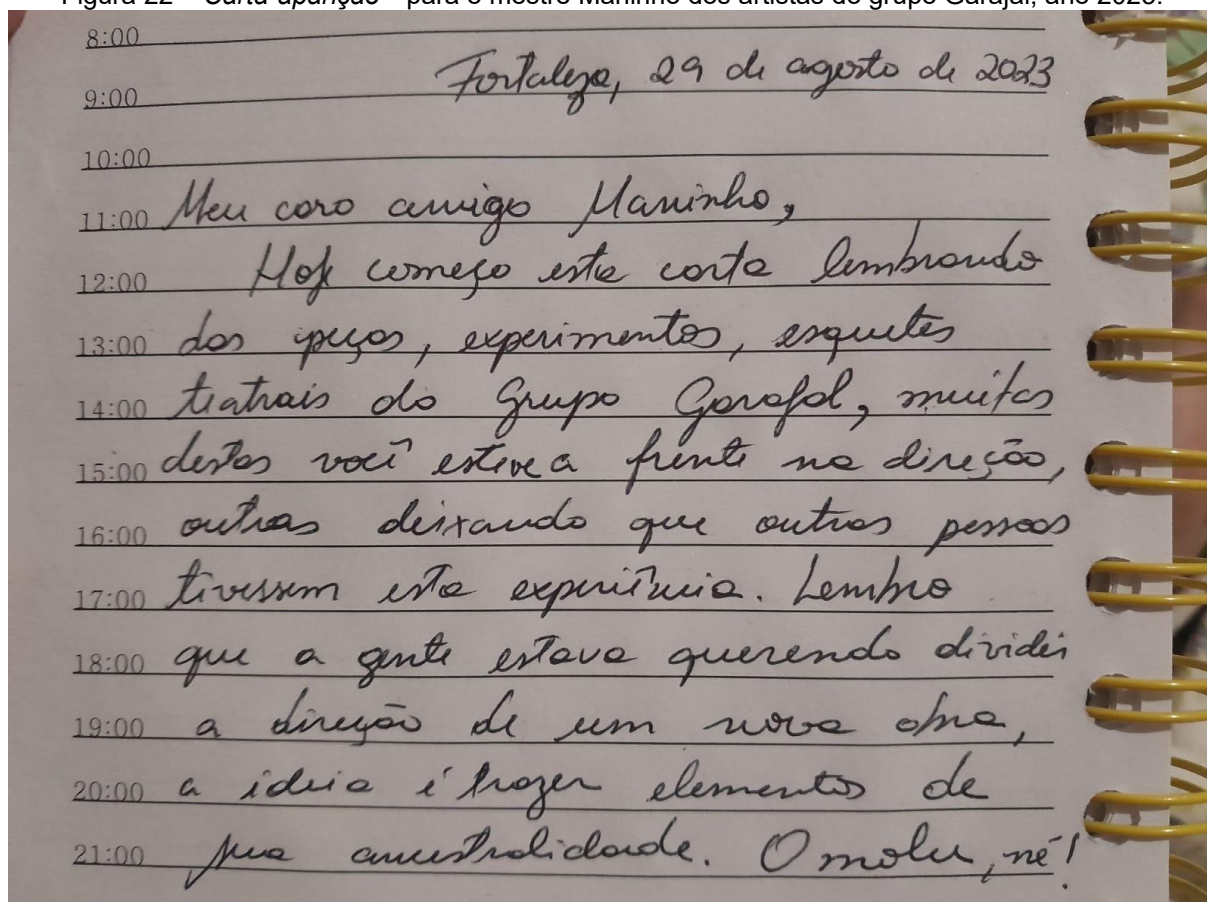 8:00
Fortaleza, 29 de agosto de 2023
9:00
10:00
11:00 Meu caro amigo Maninho,
12:00 Hoje começo esta carta lembrando
13:00 das peças, experimentos, esquetes
14:00 teatrais do Grupo Garajal, muitas
15:00 destas você esteve a frente na direção,
16:00 outras deixando que outras pessoas
17:00 tivessem esta experiência. Lembro
18:00 que a gente estava querendo dividir
19:00 a direção de um nova obra,
20:00 a ideia é trazer elementos de
21:00 sua ancestralidade. Omolu, né!